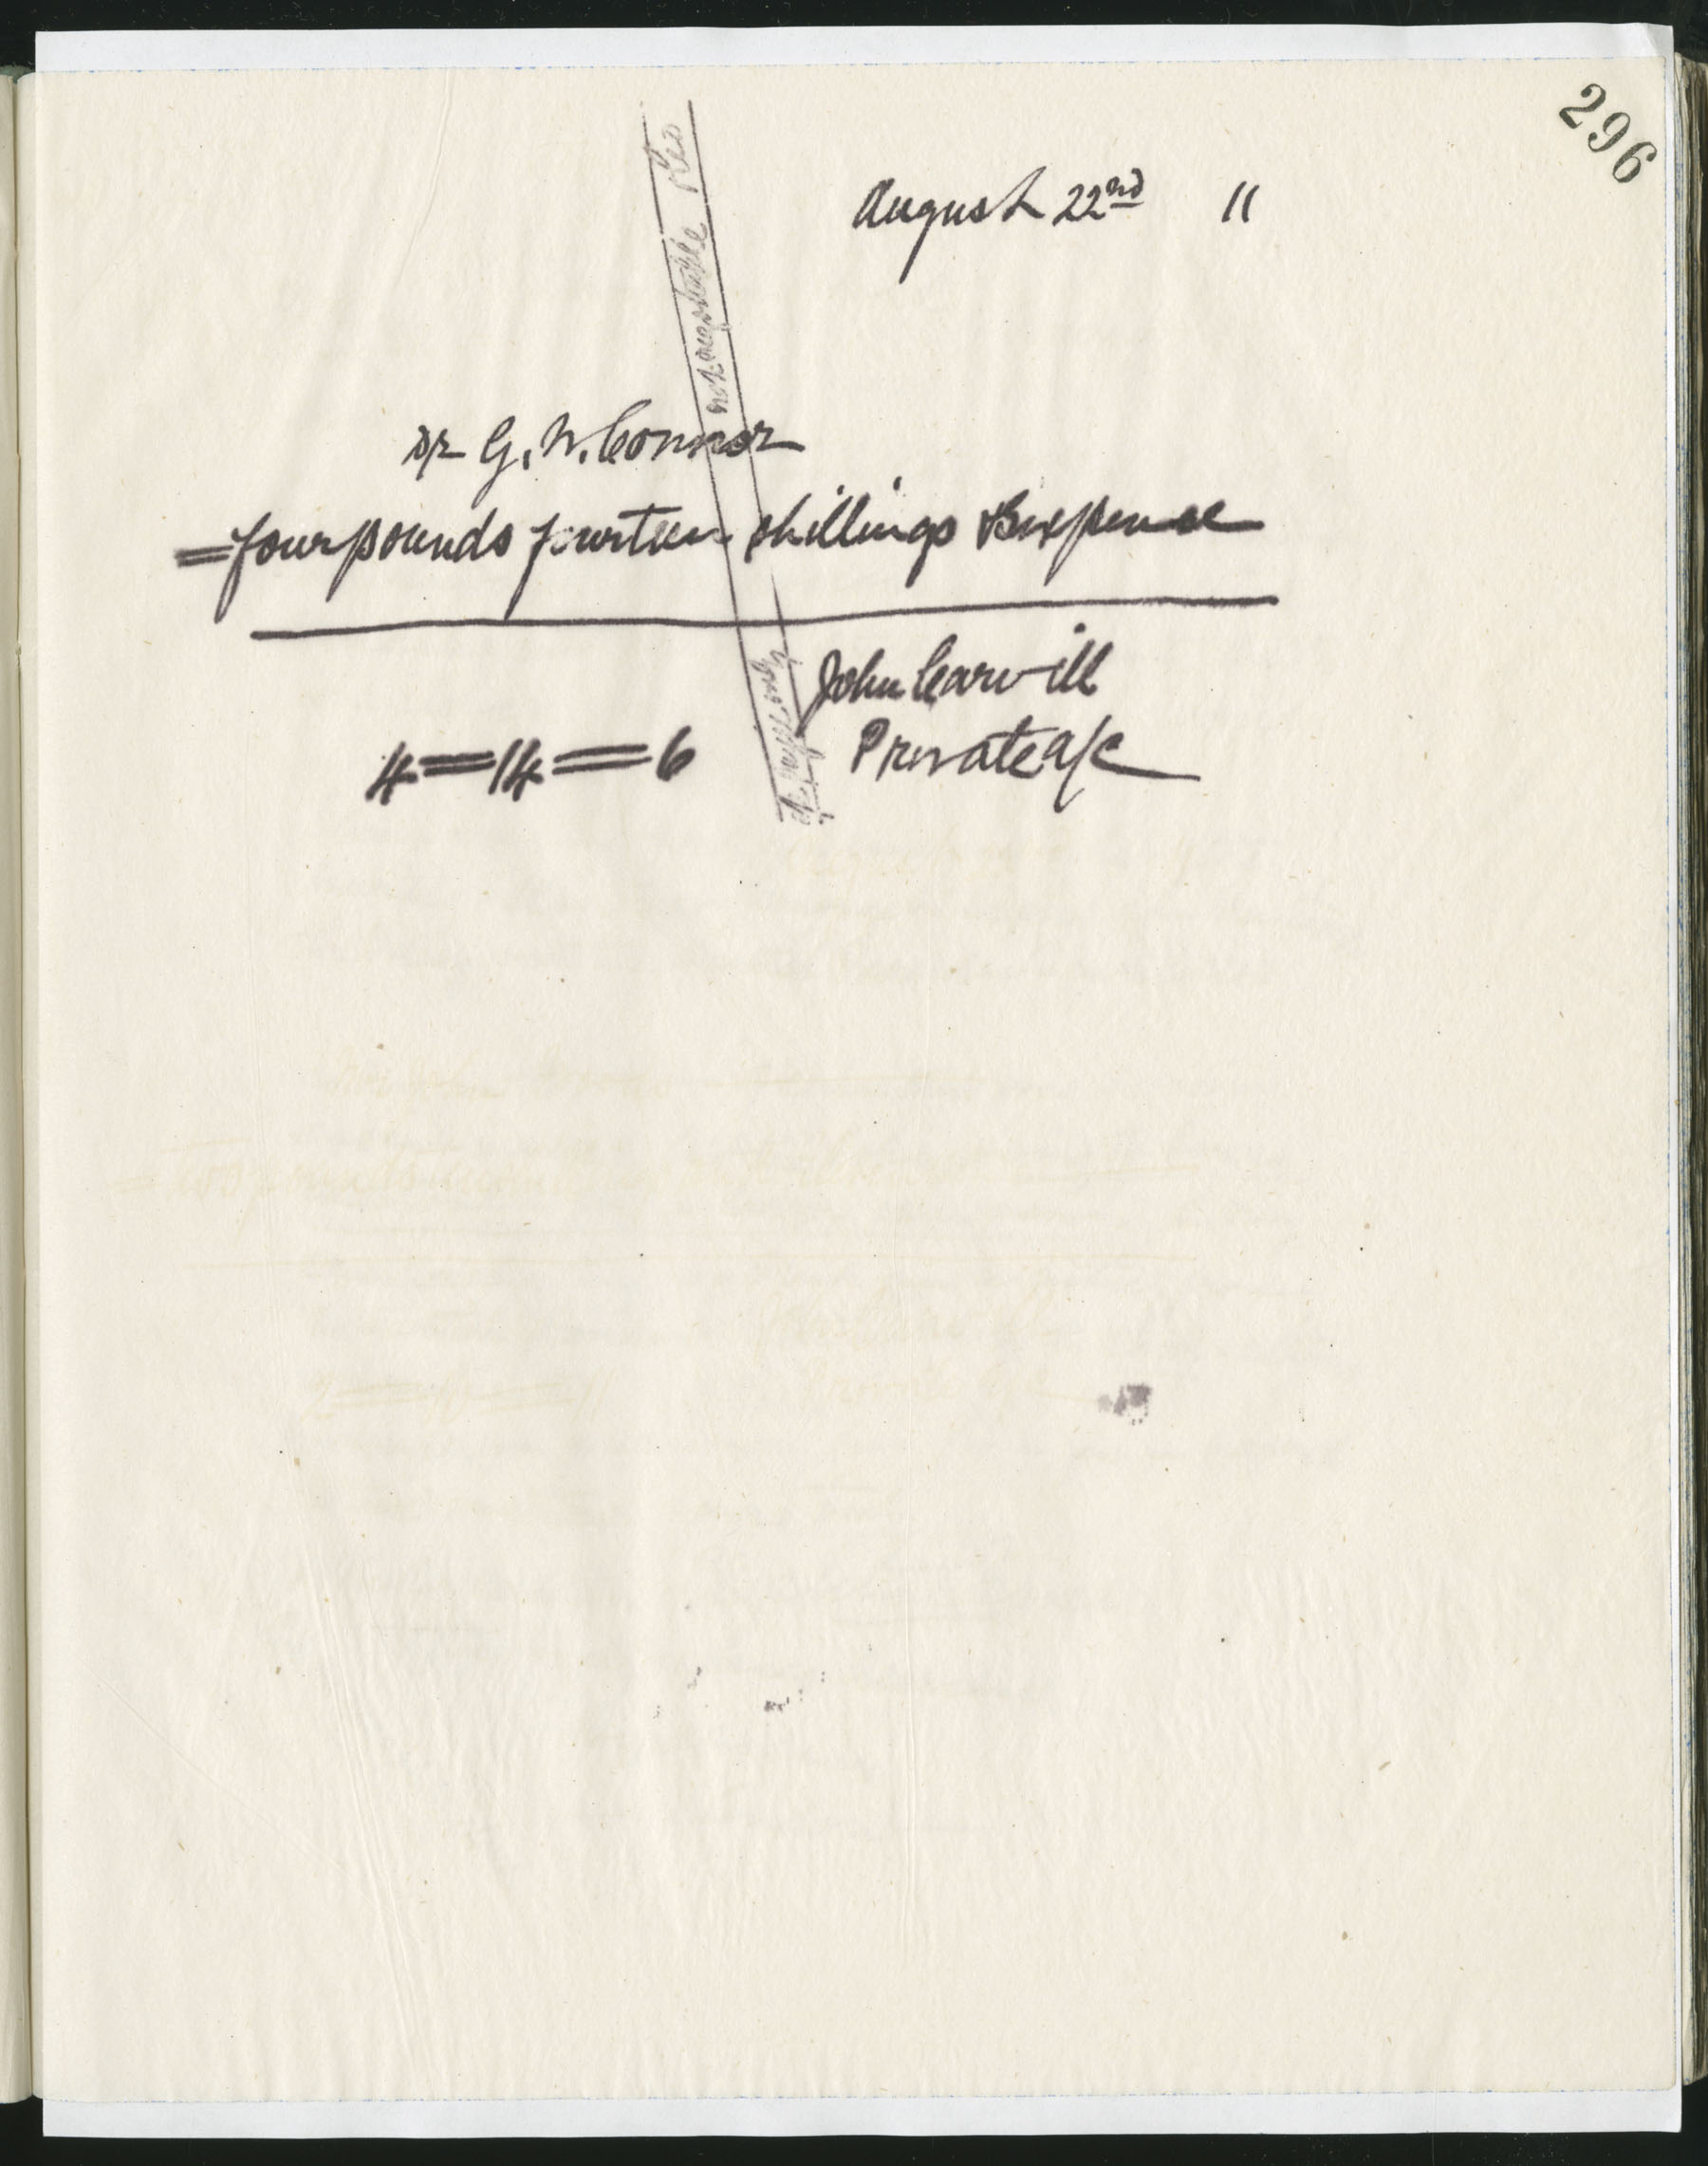 296
August 22nd 11
Dr G. W. Connor
= four pounds fourteen shillings & sixpence
John Carvill
4 = 14 = 6 Private a/c
not negotiable
a/c payee only